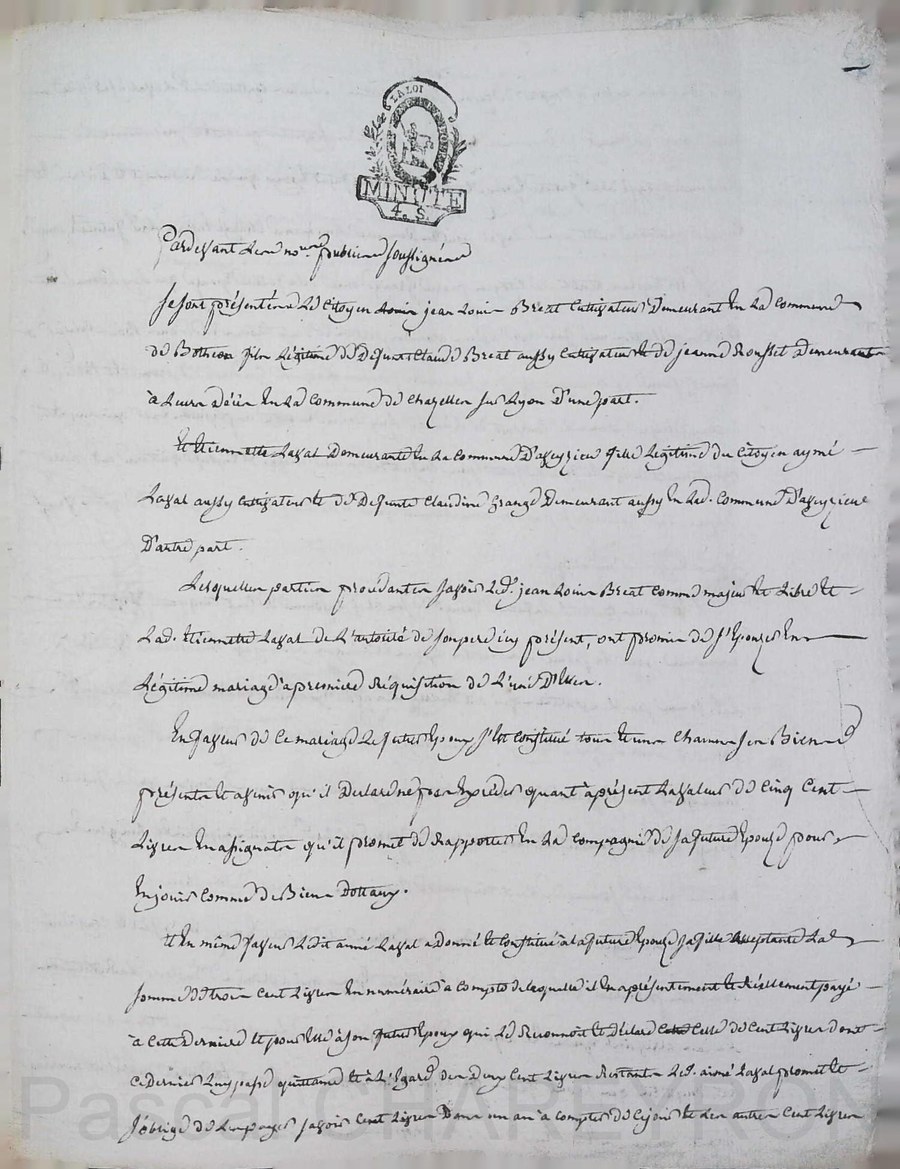 LA LOI
MINUTE
4. S.
Pardevant Les no.res publics soussignés
se sont présentés Le Citoyen jean Louis Breat Cultivateur Demeurant En La Commune
de Bothéon fils Légitime de Defunt Claude Breat aussy Cultivateur Et de jeanne Rousset Demeurants
à Leurs décès En La Commune de Chazelles sur Lyon D'une part.
Et Etiennette Laval Demeurante En La Commune D'aveyzieu fille Légitime du Citoyen aymé
Laval aussy Cultivateur Et de Defunte Claudine Grange Demeurant aussy En Lad. Commune D'aveyzieu
D'autre part.
Lesquelles parties procédantes savoir Led. jean Louis Breat Comme majeur Et Libre Et
Lad. Etiennette Laval de L'autorité de son pere icy présent, ont promis de s'Epouser En
Légitime mariage à premiere Réquisition de L'une D'Elles.
En faveur de Ce mariage Le futur Epoux s'Est Constitué tous Et uns Chacuns ses Biens
présents Et avenir qu'il Declare ne pas Excéder quant à présent La valeur de Cinq Cent
Livres En assignats qu'il promet de Rapporter En La Compagnie de sa future Epouse pour
En jouir Comme de Biens Dottaux.
Et En même faveur Ledit aimé Laval a donné Et Constitué à La future Epouse sa fille acceptante La
somme de trois Cent Livres En numéraire à Compte de Laquelle il En a présentement Et Réellement payé
à Cette Derniere Et pour Elle à son futur Epoux qui Le Reconnoit Et Déclare Celle de Cent Livres dont
Ce dernier Luy passe quittance Et à L'Egard des Deux Cent Livres Restantes Led. aimé Laval promet Et
s'oblige de Les payer savoir Cent Livres Dans un an à Compter de Ce jour Et Les autres Cent Livres
Pascal CHAREYRON